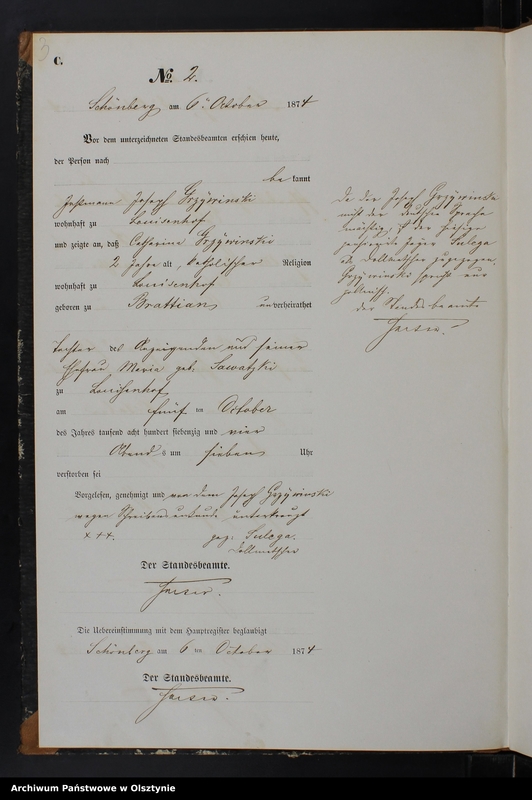 3
C.
No. 2.
Schönberg am 6ten October 1874
Vor dem unterzeichneten Standesbeamten erschien heute,
der Person nach
bekannt
Instmann Joseph Grzywinski
wohnhaft zu Louisenhof
und zeigte an, daß Catharina Grzywinski
2 Jahre alt, katholischer Religion
wohnhaft zu Louisenhof
geboren zu Brattian, unverheirathet
Tochter des Anzeigenden und seiner
Ehefrau Maria geb. Sawatzki
zu Louisenhof
am fünf ten October
des Jahres tausend acht hundert siebenzig und vier
Abends um sieben Uhr
verstorben sei
Vorgelesen, genehmigt und von dem Joseph Grzywinski
wegen Schreibensunkunde unterkreuzt
x + +. gez: Sulega.
Dollmetscher
Der Standesbeamte.
Die Uebereinstimmung mit dem Hauptregister beglaubigt
Schönberg am 6 ten October 1874
Der Standesbeamte.
Da der Joseph Grzywinski
nicht der deutschen Sprache
mächtig, ist der hiesige
Sulega
als Dollmetscher zugezogen.
Grzywinski spricht nur
polnisch.
Der Standesbeamte
Archiwum Państwowe w Olsztynie